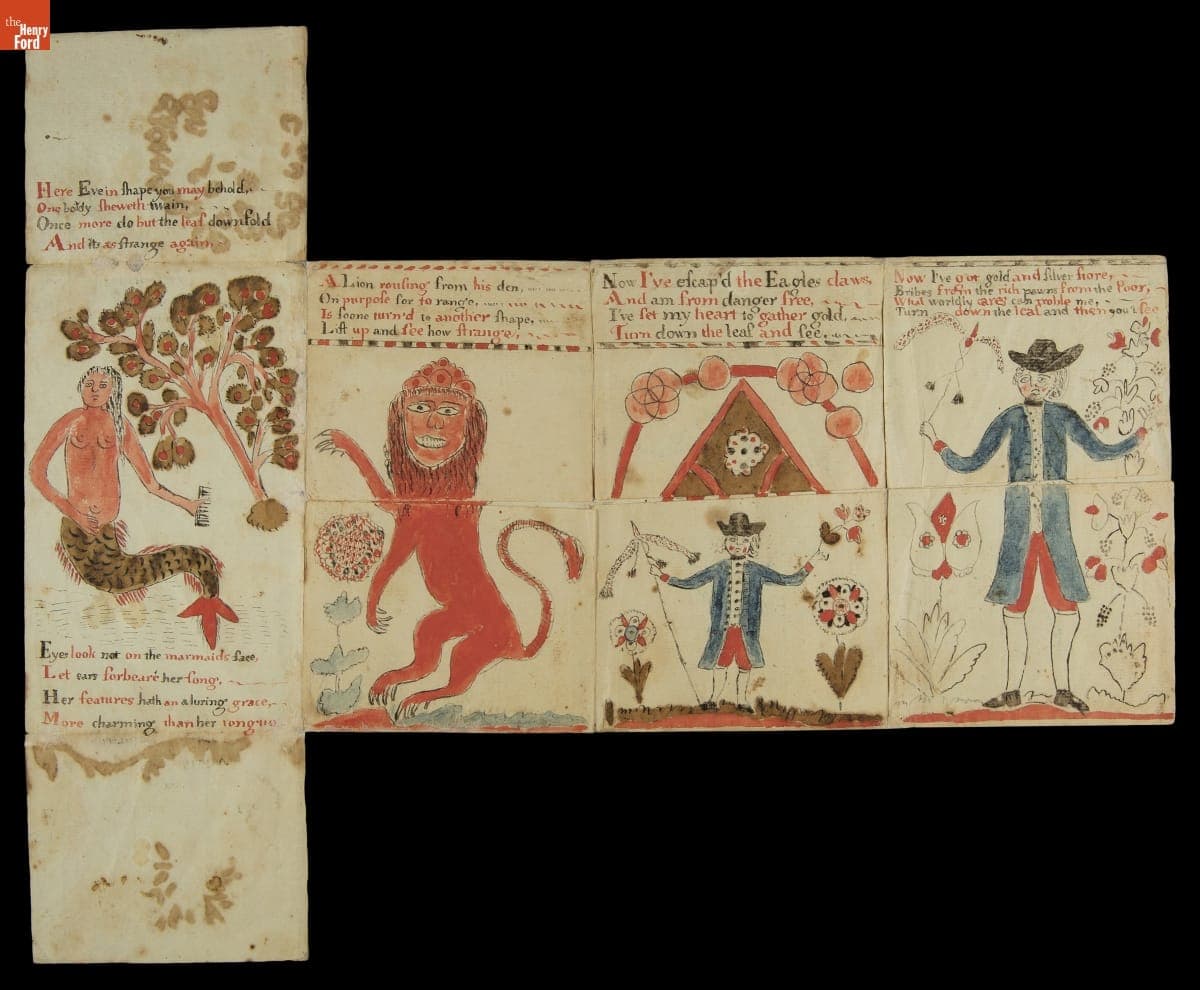 the
Henry
Ford
Here Eve in ſhape you may behold,
One boldy ſheweth twain,
Once more do but the leaf downfold
And its as ſtrange again,
Eyes look not on the marmaids face,
Let ears forbeare her ſong,
Her features hath an aluring grace,
More charming than her tongue
A Lion rouſing from his den,
On purpose for to range,
Is soone turn'd to another ſhape,
Lift up and ſee how ſtrange,
Now I've eſcap'd the Eagles claws,
And am from danger free,
I've ſet my heart to gather gold,
Turn down the leaf and ſee,
Now I've got gold and ſilver ſtore,
Bribes from the rich pawns from the Poor,
What worldly cares can troble me,
Turn down the leaf and then you'l ſee